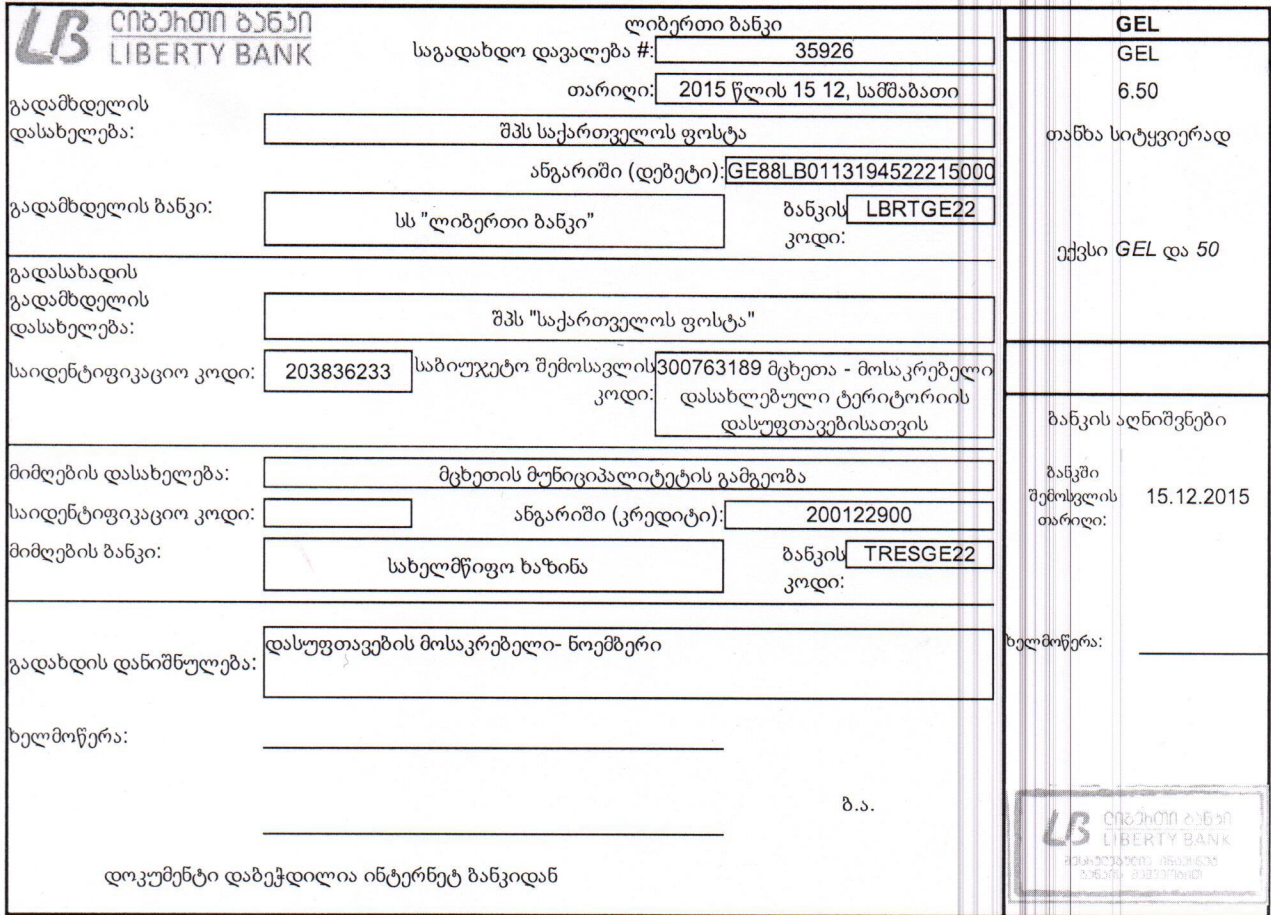 ლიბერთი ბანკი
LIBERTY BANK
ლიბერთი ბანკი
საგადახდო დავალება #: 35926
თარიღი: 2015 წლის 15 12, სამშაბათი
გადამხდელის
დასახელება: შპს საქართველოს ფოსტა
ანგარიში (დებეტი): GE88LB0113194522215000
გადამხდელის ბანკი: სს "ლიბერთი ბანკი" ბანკის LBRTGE22
კოდი:
გადასახადის
გადამხდელის
დასახელება: შპს "საქართველოს ფოსტა"
საიდენტიფიკაციო კოდი: 203836233 საბიუჯეტო შემოსავლის 300763189 მცხეთა - მოსაკრებელი
კოდი: დასახლებული ტერიტორიის
დასუფთავებისათვის
მიმღების დასახელება: მცხეთის მუნიციპალიტეტის გამგეობა
საიდენტიფიკაციო კოდი: ანგარიში (კრედიტი): 200122900
მიმღების ბანკი: სახელმწიფო ხაზინა ბანკის TRESGE22
კოდი:
გადახდის დანიშნულება: დასუფთავების მოსაკრებელი- ნოემბერი
ხელმოწერა:
ბ.ა.
დოკუმენტი დაბეჭდილია ინტერნეტ ბანკიდან
GEL
GEL
6.50
თანხა სიტყვიერად
ექვსი GEL და 50
ბანკის აღნიშვნები
ბანკში
შემოსვლის 15.12.2015
თარიღი:
ხელმოწერა:
LB ლიბერთი ბანკი
LIBERTY BANK